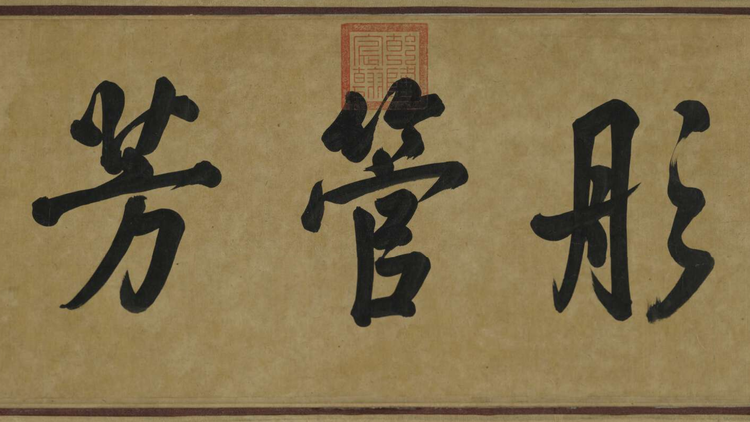 彤管芳
乾隆宸翰